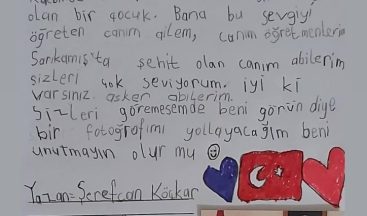 olan bir çocuk. Bana bu sevgiyi
öğreten canım ailem, canım öğretmenlerim
Sarıkamış'ta şehit olan canım abilerim
sizleri çok seviyorum. iyi ki
varsınız asker abilerim.
Sizleri göremesemde beni görün diye
bir fotoğrafımı yollayacağım beni
unutmayın olur mu
Yazan: Şerefcan Köşkar